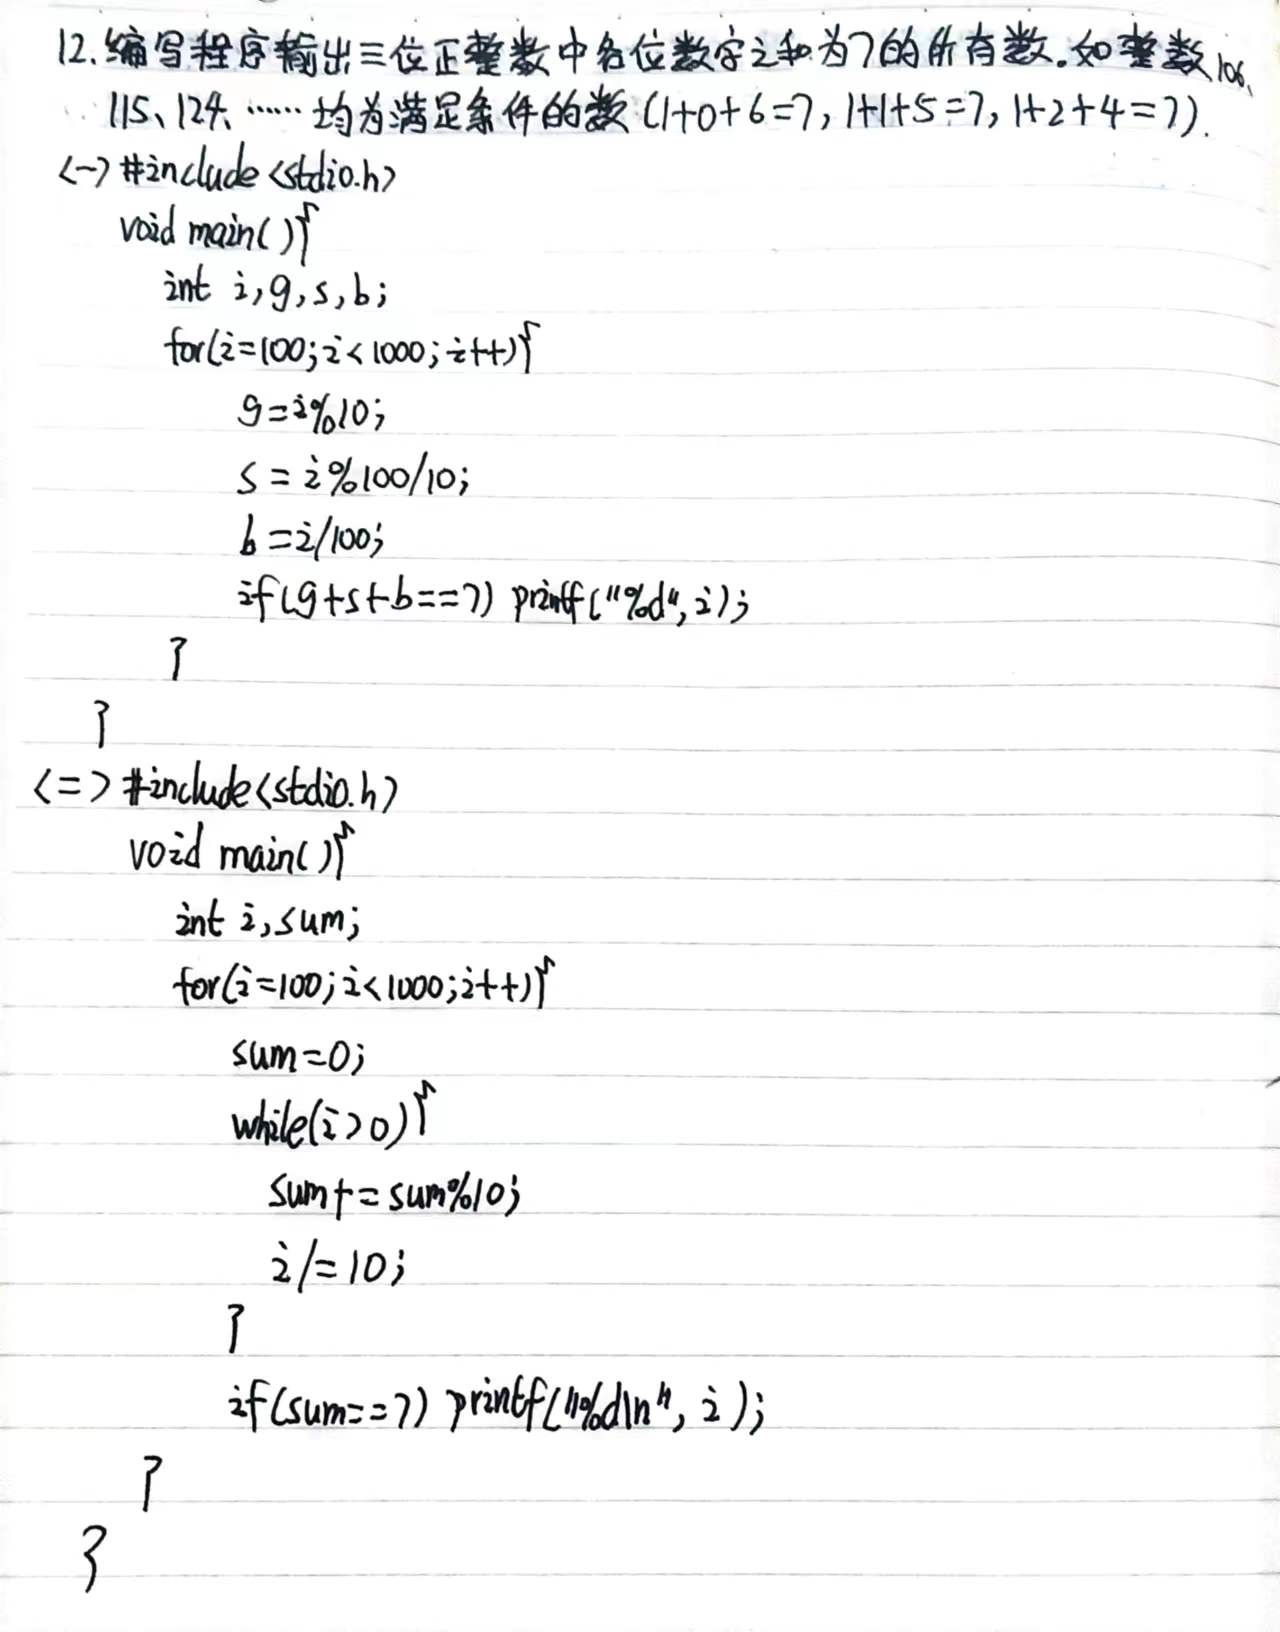 12.编写程序输出三位正整数中各位数字之和为7的所有数.如整数106、
115、124、……均为满足条件的数(1+0+6=7,1+1+5=7,1+2+4=7).
<一>#include<stdio.h>
void main(){
int i,g,s,b;
for(i=100;i<1000;i++){
g=i%10;
s=i%100/10;
b=i/100;
if(g+s+b==7) printf("%d",i);
}
}
<二>#include<stdio.h>
void main(){
int i,sum;
for(i=100;i<1000;i++){
sum=0;
while(i>0){
sum+=sum%10;
i/=10;
}
if(sum==7) printf("%d\n",i);
}
}